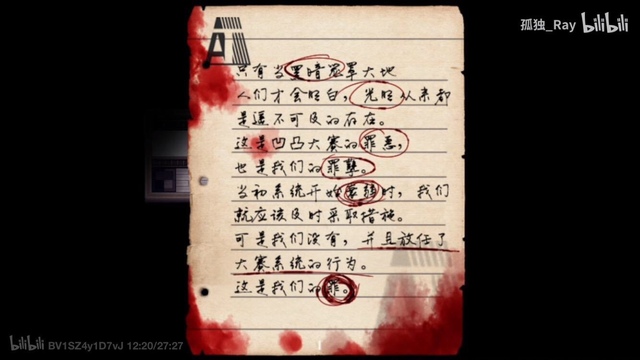 孤独_Ray bilibili
只有当黑暗笼罩大地
人们才会明白，光明从来都
是遥不可及的存在。
这是凹凸大赛的罪恶，
也是我们的罪孽。
当初系统开始紊乱时，我们
就应该及时采取措施。
可是我们没有，并且放任了
大赛系统的行为。
这是我们的罪。
bilibili BV1SZ4y1D7vJ 12:20/27:27